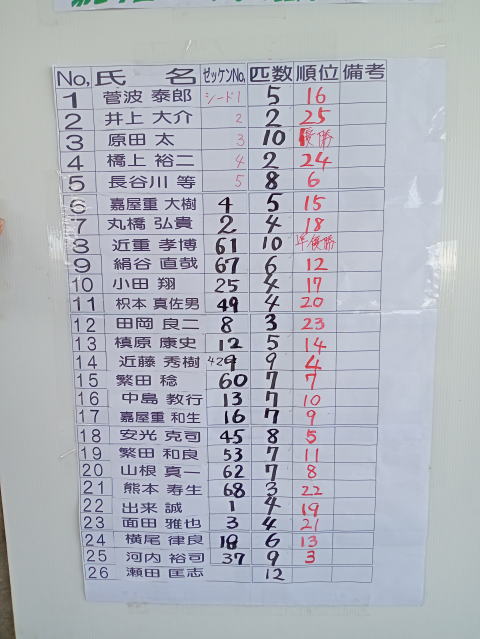 No, 氏 名 ゼッケンNo, 匹数 順位 備考
1 菅波 泰郎 シード1 5 16
2 井上 大介 2 2 25
3 原田 太 3 10 優勝
4 橋上 裕二 4 2 24
5 長谷川 等 5 8 6
6 嘉屋重 大樹 4 5 15
7 丸橋 弘貴 2 4 18
8 近重 孝博 61 10 準優勝
9 絹谷 直哉 67 6 12
10 小田 翔 25 4 17
11 枳本 真佐男 49 4 20
12 田岡 良二 8 3 23
13 槙原 康史 12 5 14
14 近藤 秀樹 429 9 4
15 繁田 稔 60 7 7
16 中島 教行 13 7 10
17 嘉屋重 和生 16 7 9
18 安光 克司 45 8 5
19 繁田 和良 53 7 11
20 山根 真一 62 7 8
21 熊本 寿生 68 3 22
22 出来 誠 1 4 19
23 面田 雅也 3 4 21
24 横尾 律良 18 6 13
25 河内 裕司 37 9 3
26 瀬田 匡志 12